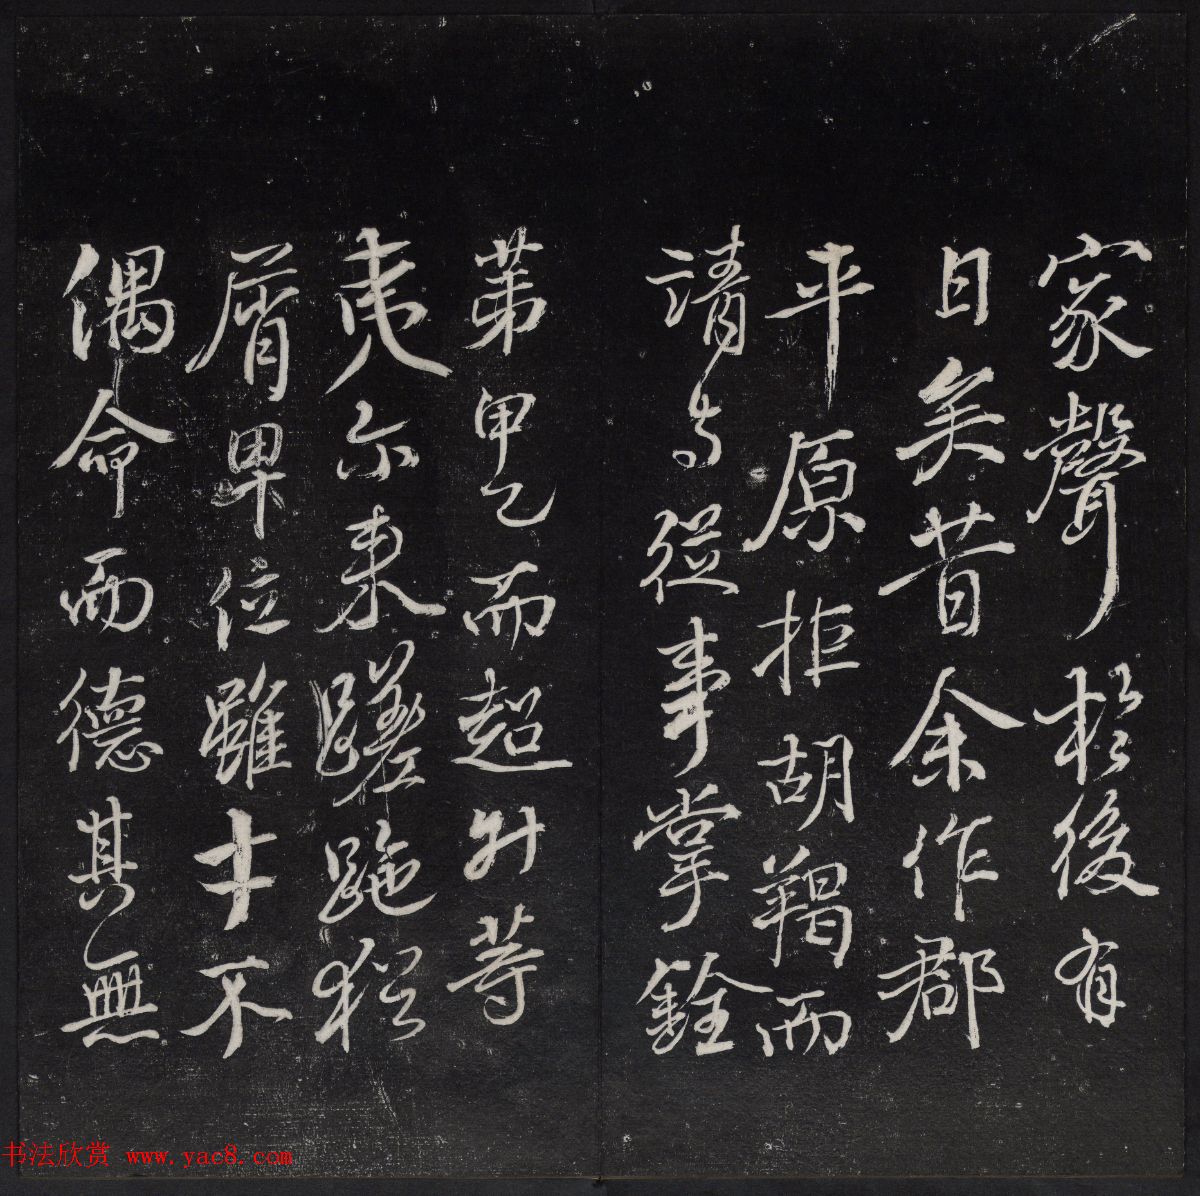 家聲於後有
日矣昔余作郡
平原拒胡羯而
請与從事掌銓
苐甲乙而超升等
夷尓來蹉跎猶
屑卑位雖才不
偶命而德其無
书法欣赏 www.yac8.com